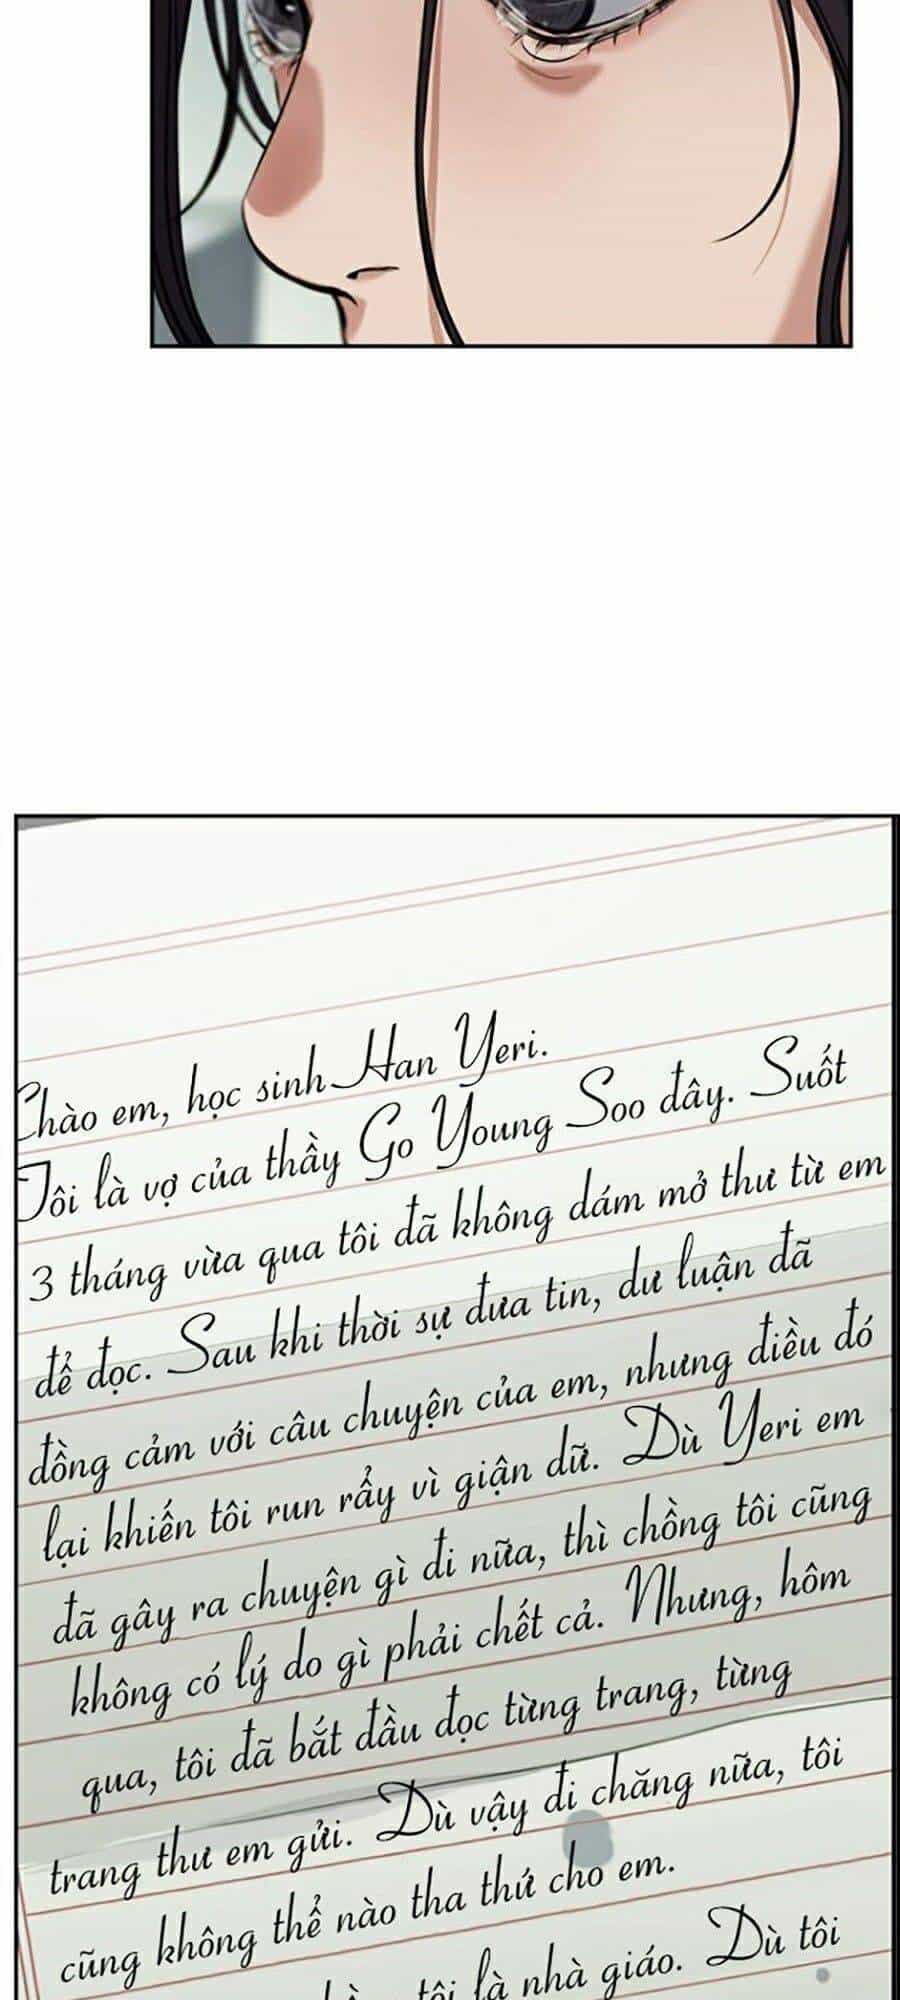 Chào em, học sinh Han Yeri.
Tôi là vợ của thầy Go Young Soo đây. Suốt
3 tháng vừa qua tôi đã không dám mở thư từ em
để đọc. Sau khi thời sự đưa tin, dư luận đã
đồng cảm với câu chuyện của em, nhưng điều đó
lại khiến tôi run rẩy vì giận dữ. Dù Yeri em
đã gây ra chuyện gì đi nữa, thì chồng tôi cũng
không có lý do gì phải chết cả. Nhưng, hôm
qua, tôi đã bắt đầu đọc từng trang, từng
trang thư em gửi. Dù vậy đi chăng nữa, tôi
cũng không thể nào tha thứ cho em.
tôi là nhà giáo. Dù tôi